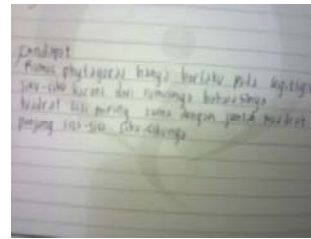 Pendapat
Rumus phytagoras hanya berlaku pada segitiga
siku-siku karena dari rumusnya bahwasinya
kuadrat sisi miring sama dengan jumlah kuadrat
panjang sisi-sisi siku-sikunya